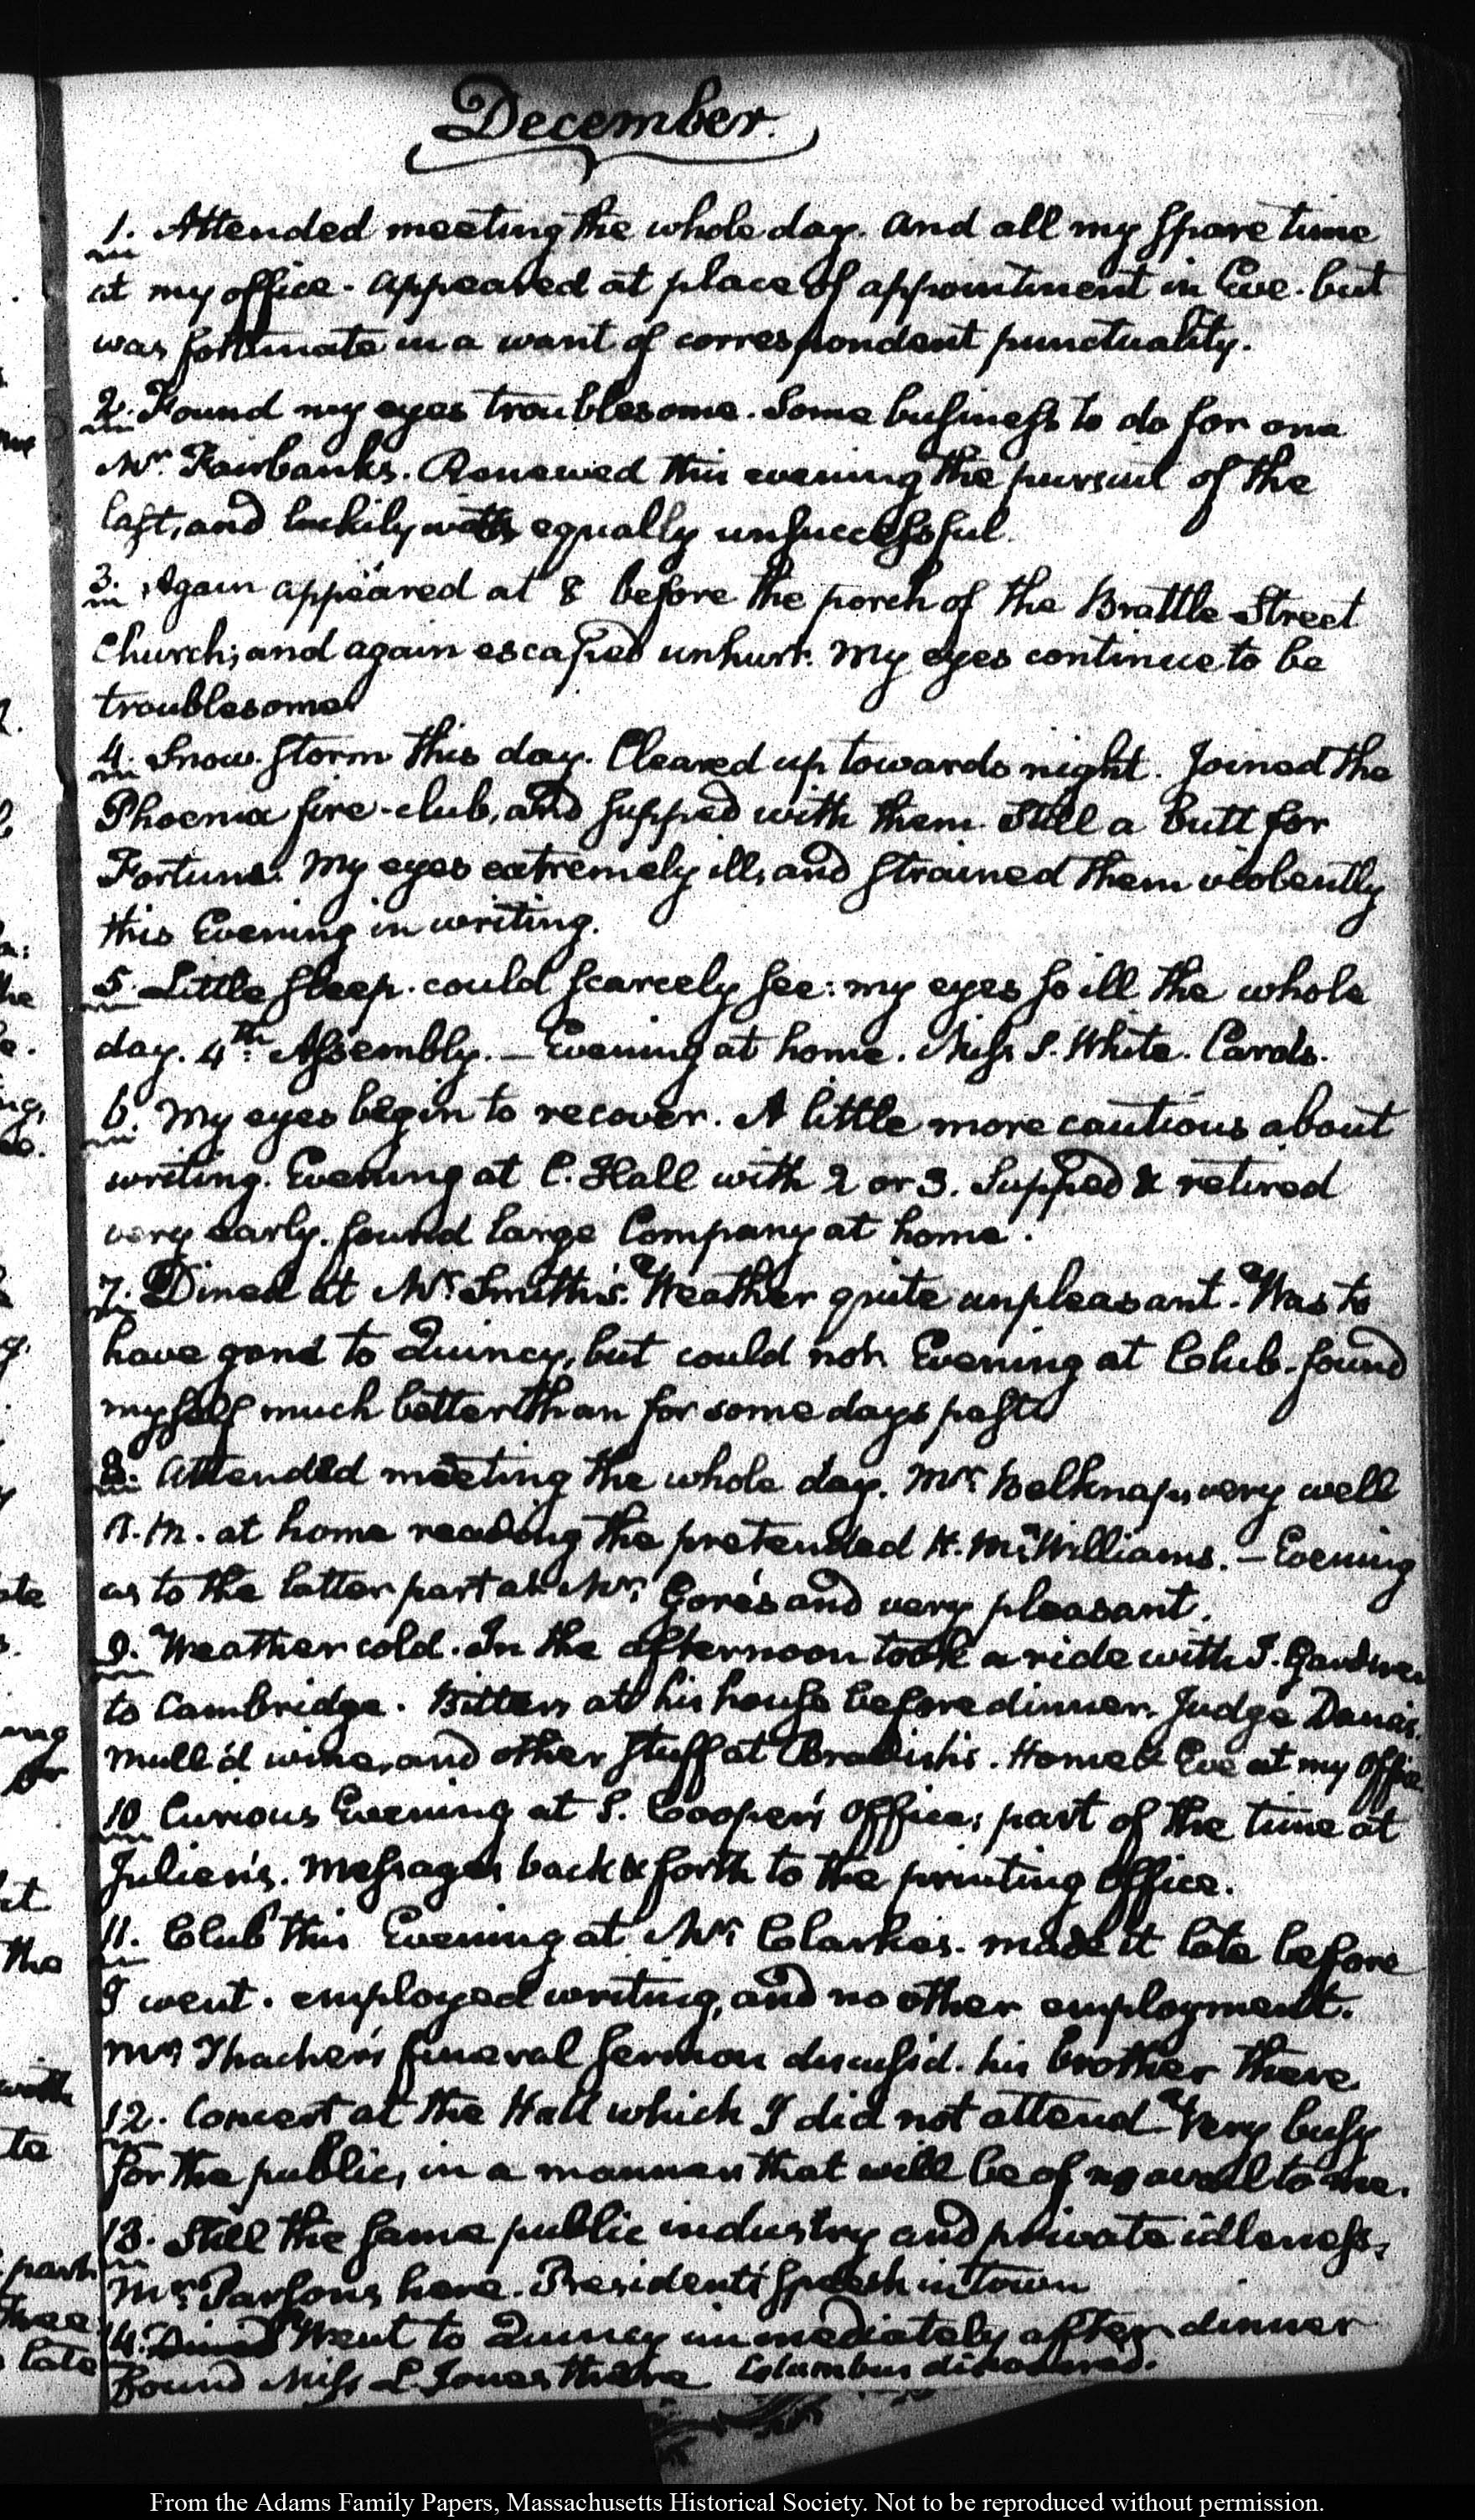 December.
1. Attended meeting the whole day. and all my spare time
at my office. appeared at place of appointment in Eve. but
was fortunate in a want of correspondent punctuality.
2. Found my eyes troublesome. Some business to do for one
Mr. Fairbanks. Renewed this evening the pursuit of the
last, and luckily was equally unsuccessful.
3. Again appeared at 8 before the porch of the Brattle Street
Church; and again escaped unhurt. My eyes continue to be
troublesome.
4. Snow storm this day. Cleared up towards night. Joined the
Phoenix fire-club, and supped with them. Still a Butt for
Fortune. My eyes extremely ill, and strained them violently
this Evening in writing.
5. Little sleep. could scarcely see: my eyes so ill the whole
day. 4th. Assembly. — Evening at home. Miss S. White. Cards.
6. My eyes begin to recover. A little more cautious about
writing. Evening at C. Hall with 2 or 3. Supped & retired
very early. found large Company at home.
7. Dined at Mr. Smith's. Weather quite unpleasant. Was to
have gone to Quincy, but could not. Evening at Club. found
myself much better than for some days past.
8. Attended meeting the whole day. Mr. Belknap, very well
A.M. at home reading the pretended H. M. Williams. — Evening
as to the latter part at Mr. Gore's and very pleasant.
9. Weather cold. In the afternoon took a ride with J. Gardner
to Cambridge. Bitters at his house before dinner. Judge Dana's.
Mull'd wine, and other stuff at Bradish's. Home & Eve at my office
10. Curious Evening at S. Cooper's office; part of the time at
Julien's. Messages back & forth to the printing office.
11. Club this Evening at Mr. Clarke's. made it late before
I went. employed writing, and no other employment.
Mr. Thacher's funeral sermon discuss'd. his brother there.
12. Concert at the Hall which I did not attend. Very busy
for the public, in a manner that will be of no avail to me.
13. Still the same public industry and private idleness.
Mr. Parsons here. President's Speech in town
14. Dined Went to Quincy immediately after dinner
Found Miss L. Jones there Columbus discovered.
From the Adams Family Papers, Massachusetts Historical Society. Not to be reproduced without permission.